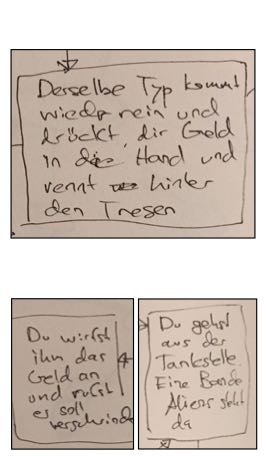 Derselbe Typ kommt
wieder rein und
drückt dir Geld
in die Hand und
rennt hinter
den Tresen
Du wirfst
ihm das
Geld an
und rufst
es soll
verschwinde
Du gehst
aus der
Tankstelle.
Eine Bande
Aliens steht
da